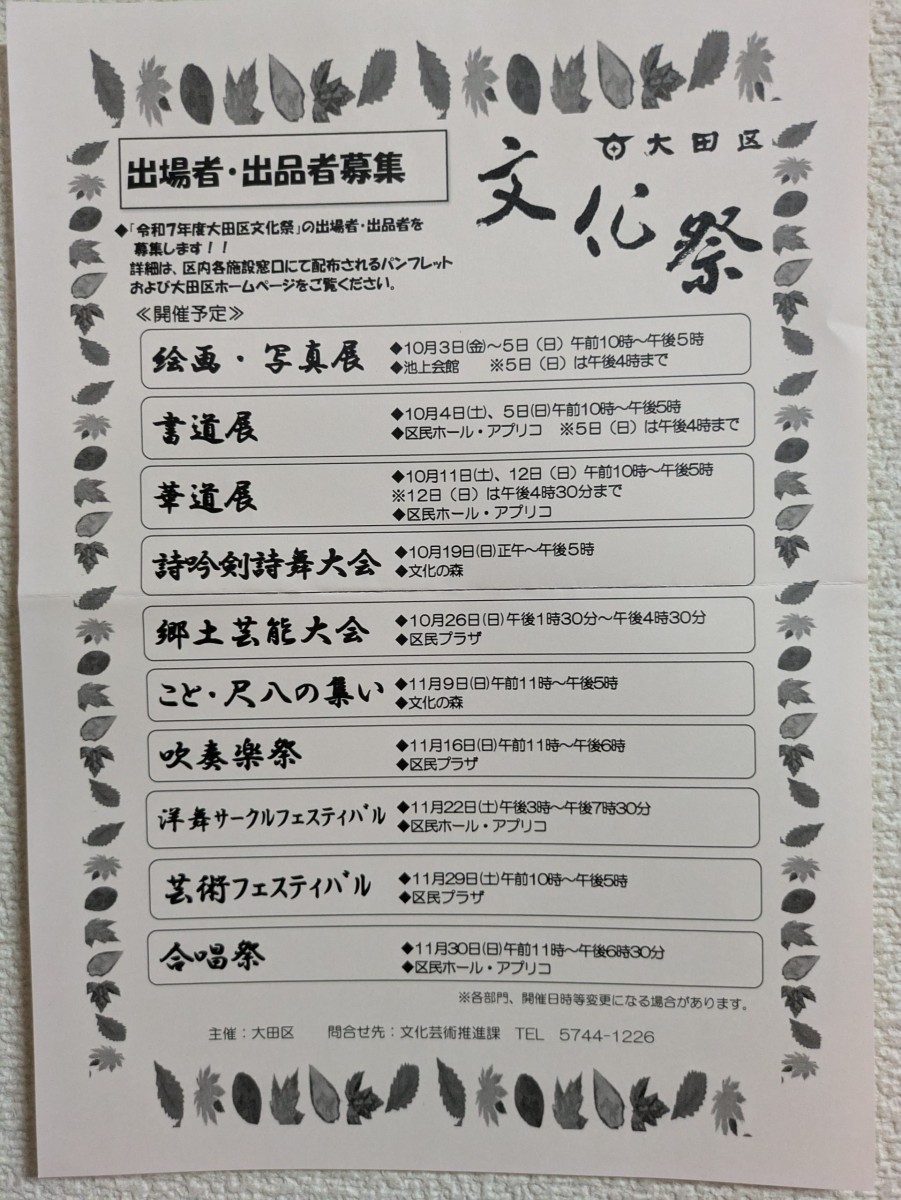 出場者・出品者募集
大田区
文化祭
◆「令和7年度大田区文化祭」の出場者・出品者を
募集します！！
詳細は、区内各施設窓口にて配布されるパンフレット
および大田区ホームページをご覧ください。
≪開催予定≫
絵画・写真展
◆10月3日(金)～5日（日）午前10時～午後5時
◆池上会館　　※5日（日）は午後4時まで
書道展
◆10月4日(土)、5日(日)午前10時～午後5時
◆区民ホール・アプリコ　※5日（日）は午後4時まで
華道展
◆10月11日(土)、12日（日）午前10時～午後5時
※12日（日）は午後4時30分まで
◆区民ホール・アプリコ
詩吟剣詩舞大会
◆10月19日(日)正午～午後5時
◆文化の森
郷土芸能大会
◆10月26日(日)午後1時30分～午後4時30分
◆区民プラザ
こと・尺八の集い
◆11月9日(日)午前11時～午後5時
◆文化の森
吹奏楽祭
◆11月16日(日)午前11時～午後6時
◆区民プラザ
洋舞サークルフェスティバル
◆11月22日(土)午後3時～午後7時30分
◆区民ホール・アプリコ
芸術フェスティバル
◆11月29日(土)午前10時～午後5時
◆区民プラザ
合唱祭
◆11月30日(日)午前11時～午後6時30分
◆区民ホール・アプリコ
※各部門、開催日時等変更になる場合があります。
主催：大田区　　問合せ先：文化芸術推進課　TEL　5744-1226